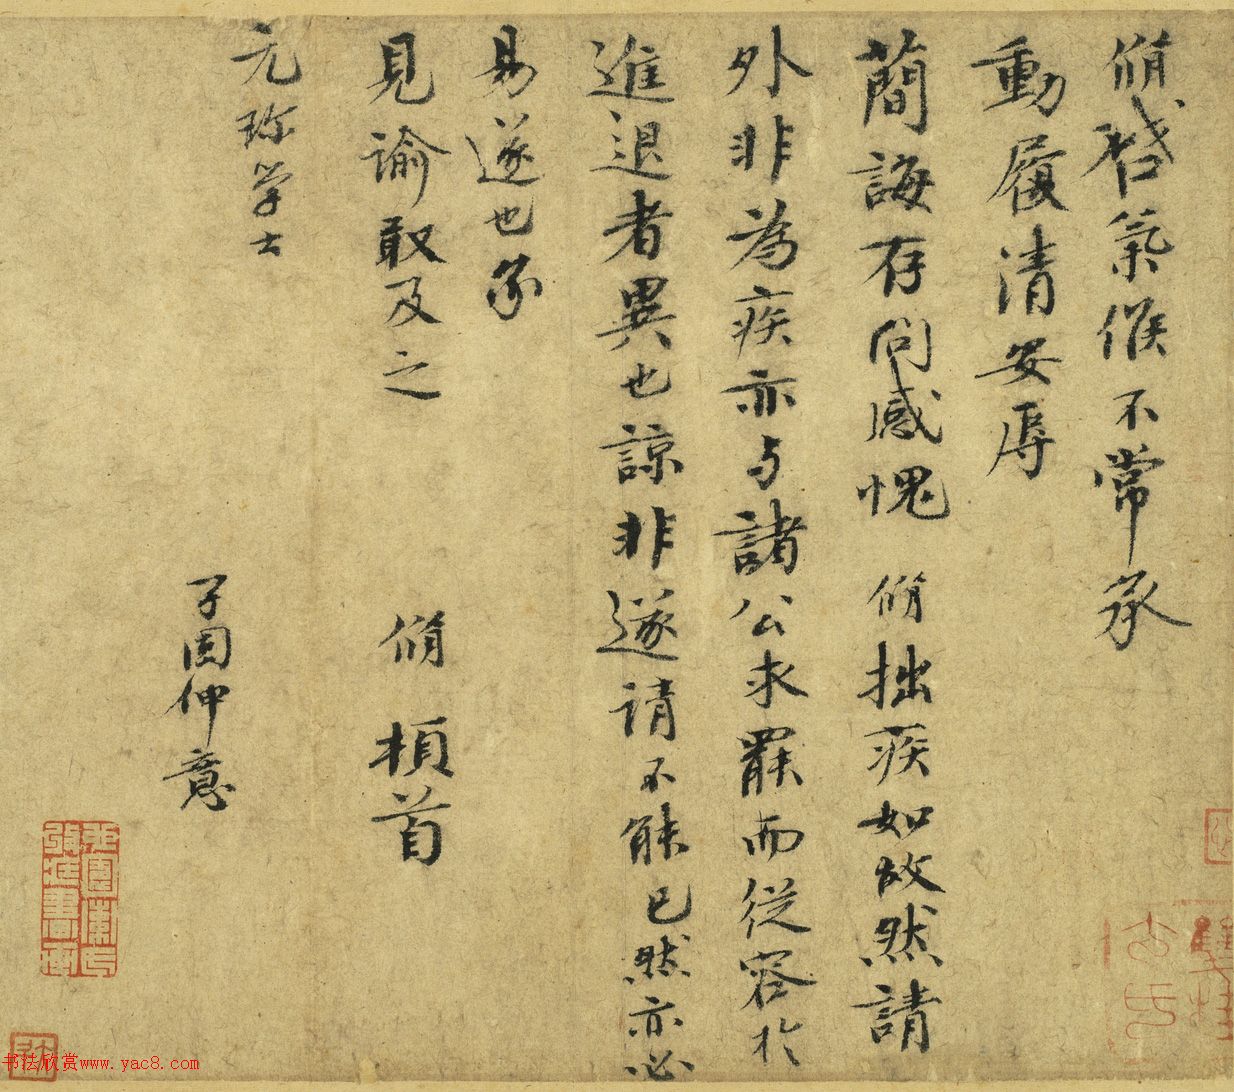 脩啓氣候不常承
動履清安辱
簡誨存問感愧脩拙疾如故然請
外非為疾亦与諸公求罷而從容於
進退者異也諒非遂請不能已然亦必
易遂也承
見諭敢及之
脩頓首
元珍學士
子固仲意
书法欣赏www.yac8.com